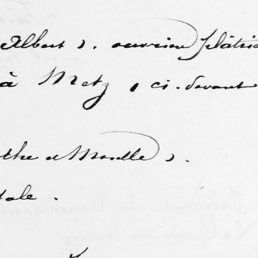 Albert), ouvrier plâtri
à Metz, ci-devant
the et Moselle).
tale.